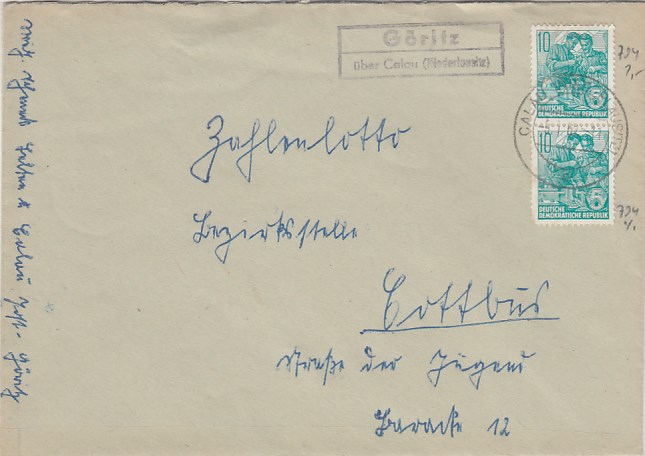 Göritz
über Calau (Niederlausitz)
10
DEUTSCHE
DEMOKRATISCHE REPUBLIK
5
794
CALAU
10
DEUTSCHE
DEMOKRATISCHE REPUBLIK
5
794
Zahlenlotto
Bezirksstelle
Cottbus
Straße der Jugend
Baracke 12
Calau Post-Göritz